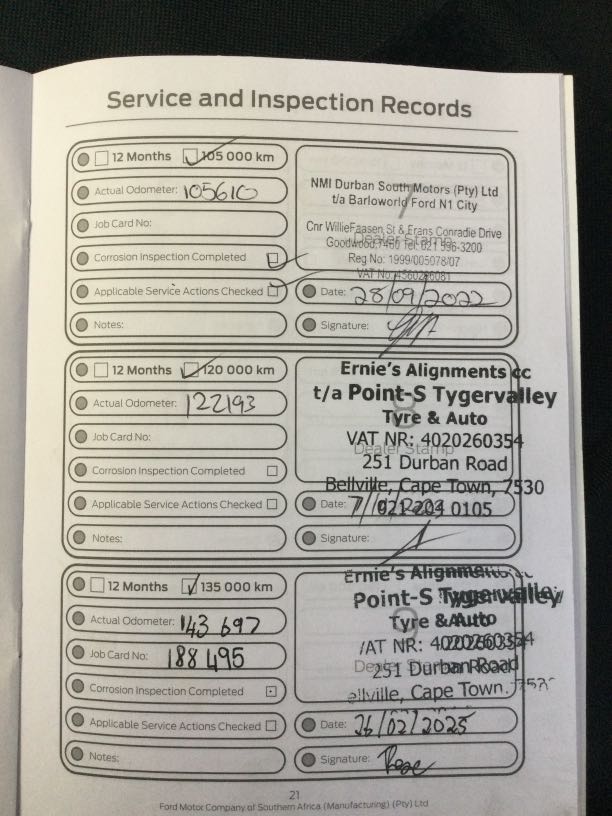 Service and Inspection Records
12 Months 105 000 km
Actual Odometer: 105610
Job Card No:
Corrosion Inspection Completed
Applicable Service Actions Checked
Notes:
7
NMI Durban South Motors (Pty) Ltd
t/a Barloworld Ford N1 City
Cnr WillieFaasen St & Frans Conradie Drive
Dealer Stamp
Goodwood 7460 Tel: 021 596-3200
Reg No: 1999/005078/07
VAT No:
Date: 28/09/2022
Signature:
12 Months 120 000 km
Actual Odometer: 122193
Job Card No:
Corrosion Inspection Completed
Applicable Service Actions Checked
Notes:
Ernie's Alignments cc
t/a Point-S Tygervalley
8
Tyre & Auto
VAT NR: 4020260354
Dealer Stamp
251 Durban Road
Bellville, Cape Town, 7530
021 0105
Date:
Signature:
12 Months 135 000 km
Actual Odometer: 143 697
Job Card No: 188495
Corrosion Inspection Completed
Applicable Service Actions Checked
Notes:
Ernie's
Point-S Tygervalley
9
Tyre & Auto
/AT NR: 4020260354
Dealer
251 Durban Road
ellville, Cape Town.
Date: 26/02/2025
Signature:
21
Ford Motor Company of Southern Africa (Manufacturing) (Pty) Ltd